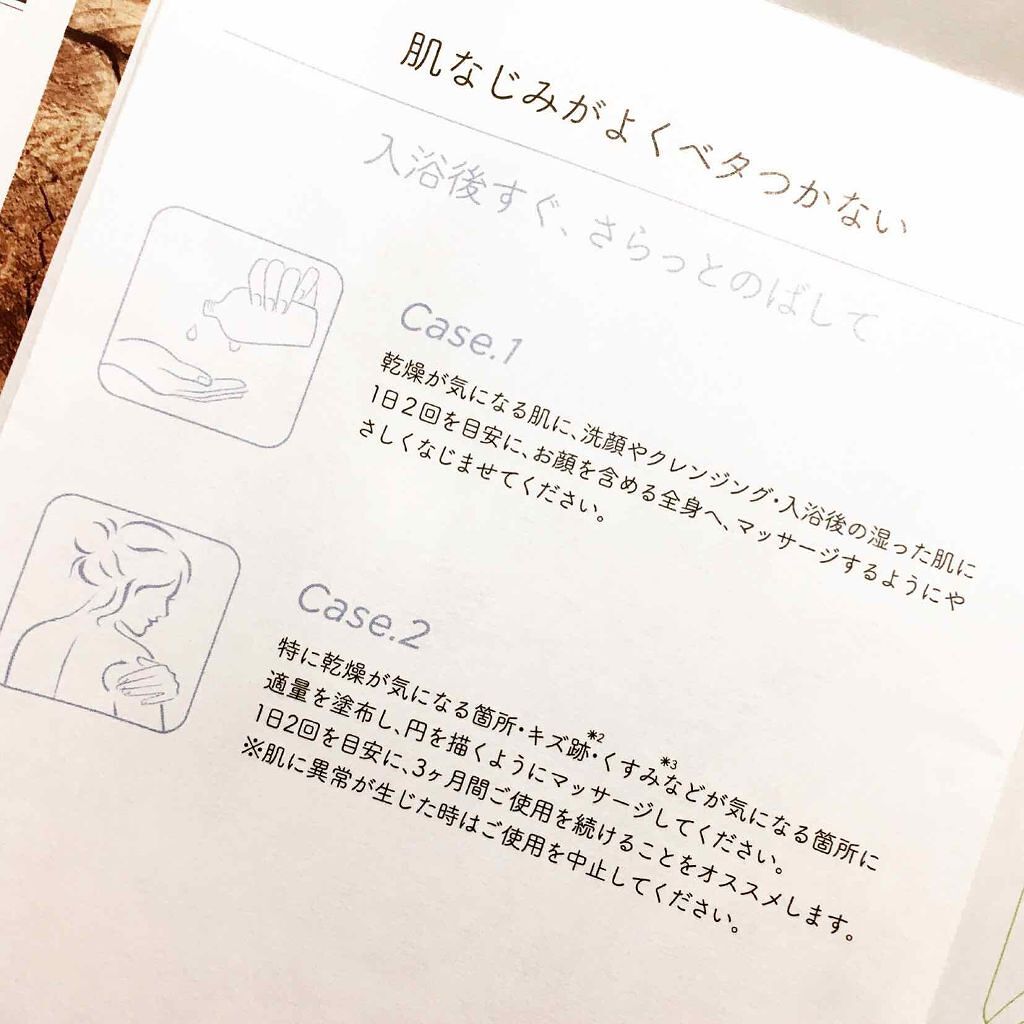 肌なじみがよくベタつかない
入浴後すぐ、さらっとのばして
Case.1
乾燥が気になる肌に、洗顔やクレンジング・入浴後の湿った肌に
1日2回を目安に、お顔を含める全身へ、マッサージするようにや
さしくなじませてください。
Case.2
特に乾燥が気になる箇所・キズ跡*2・くすみ*3などが気になる箇所に
適量を塗布し、円を描くようにマッサージしてください。
1日2回を目安に、3ヶ月間ご使用を続けることをオススメします。
※肌に異常が生じた時はご使用を中止してください。